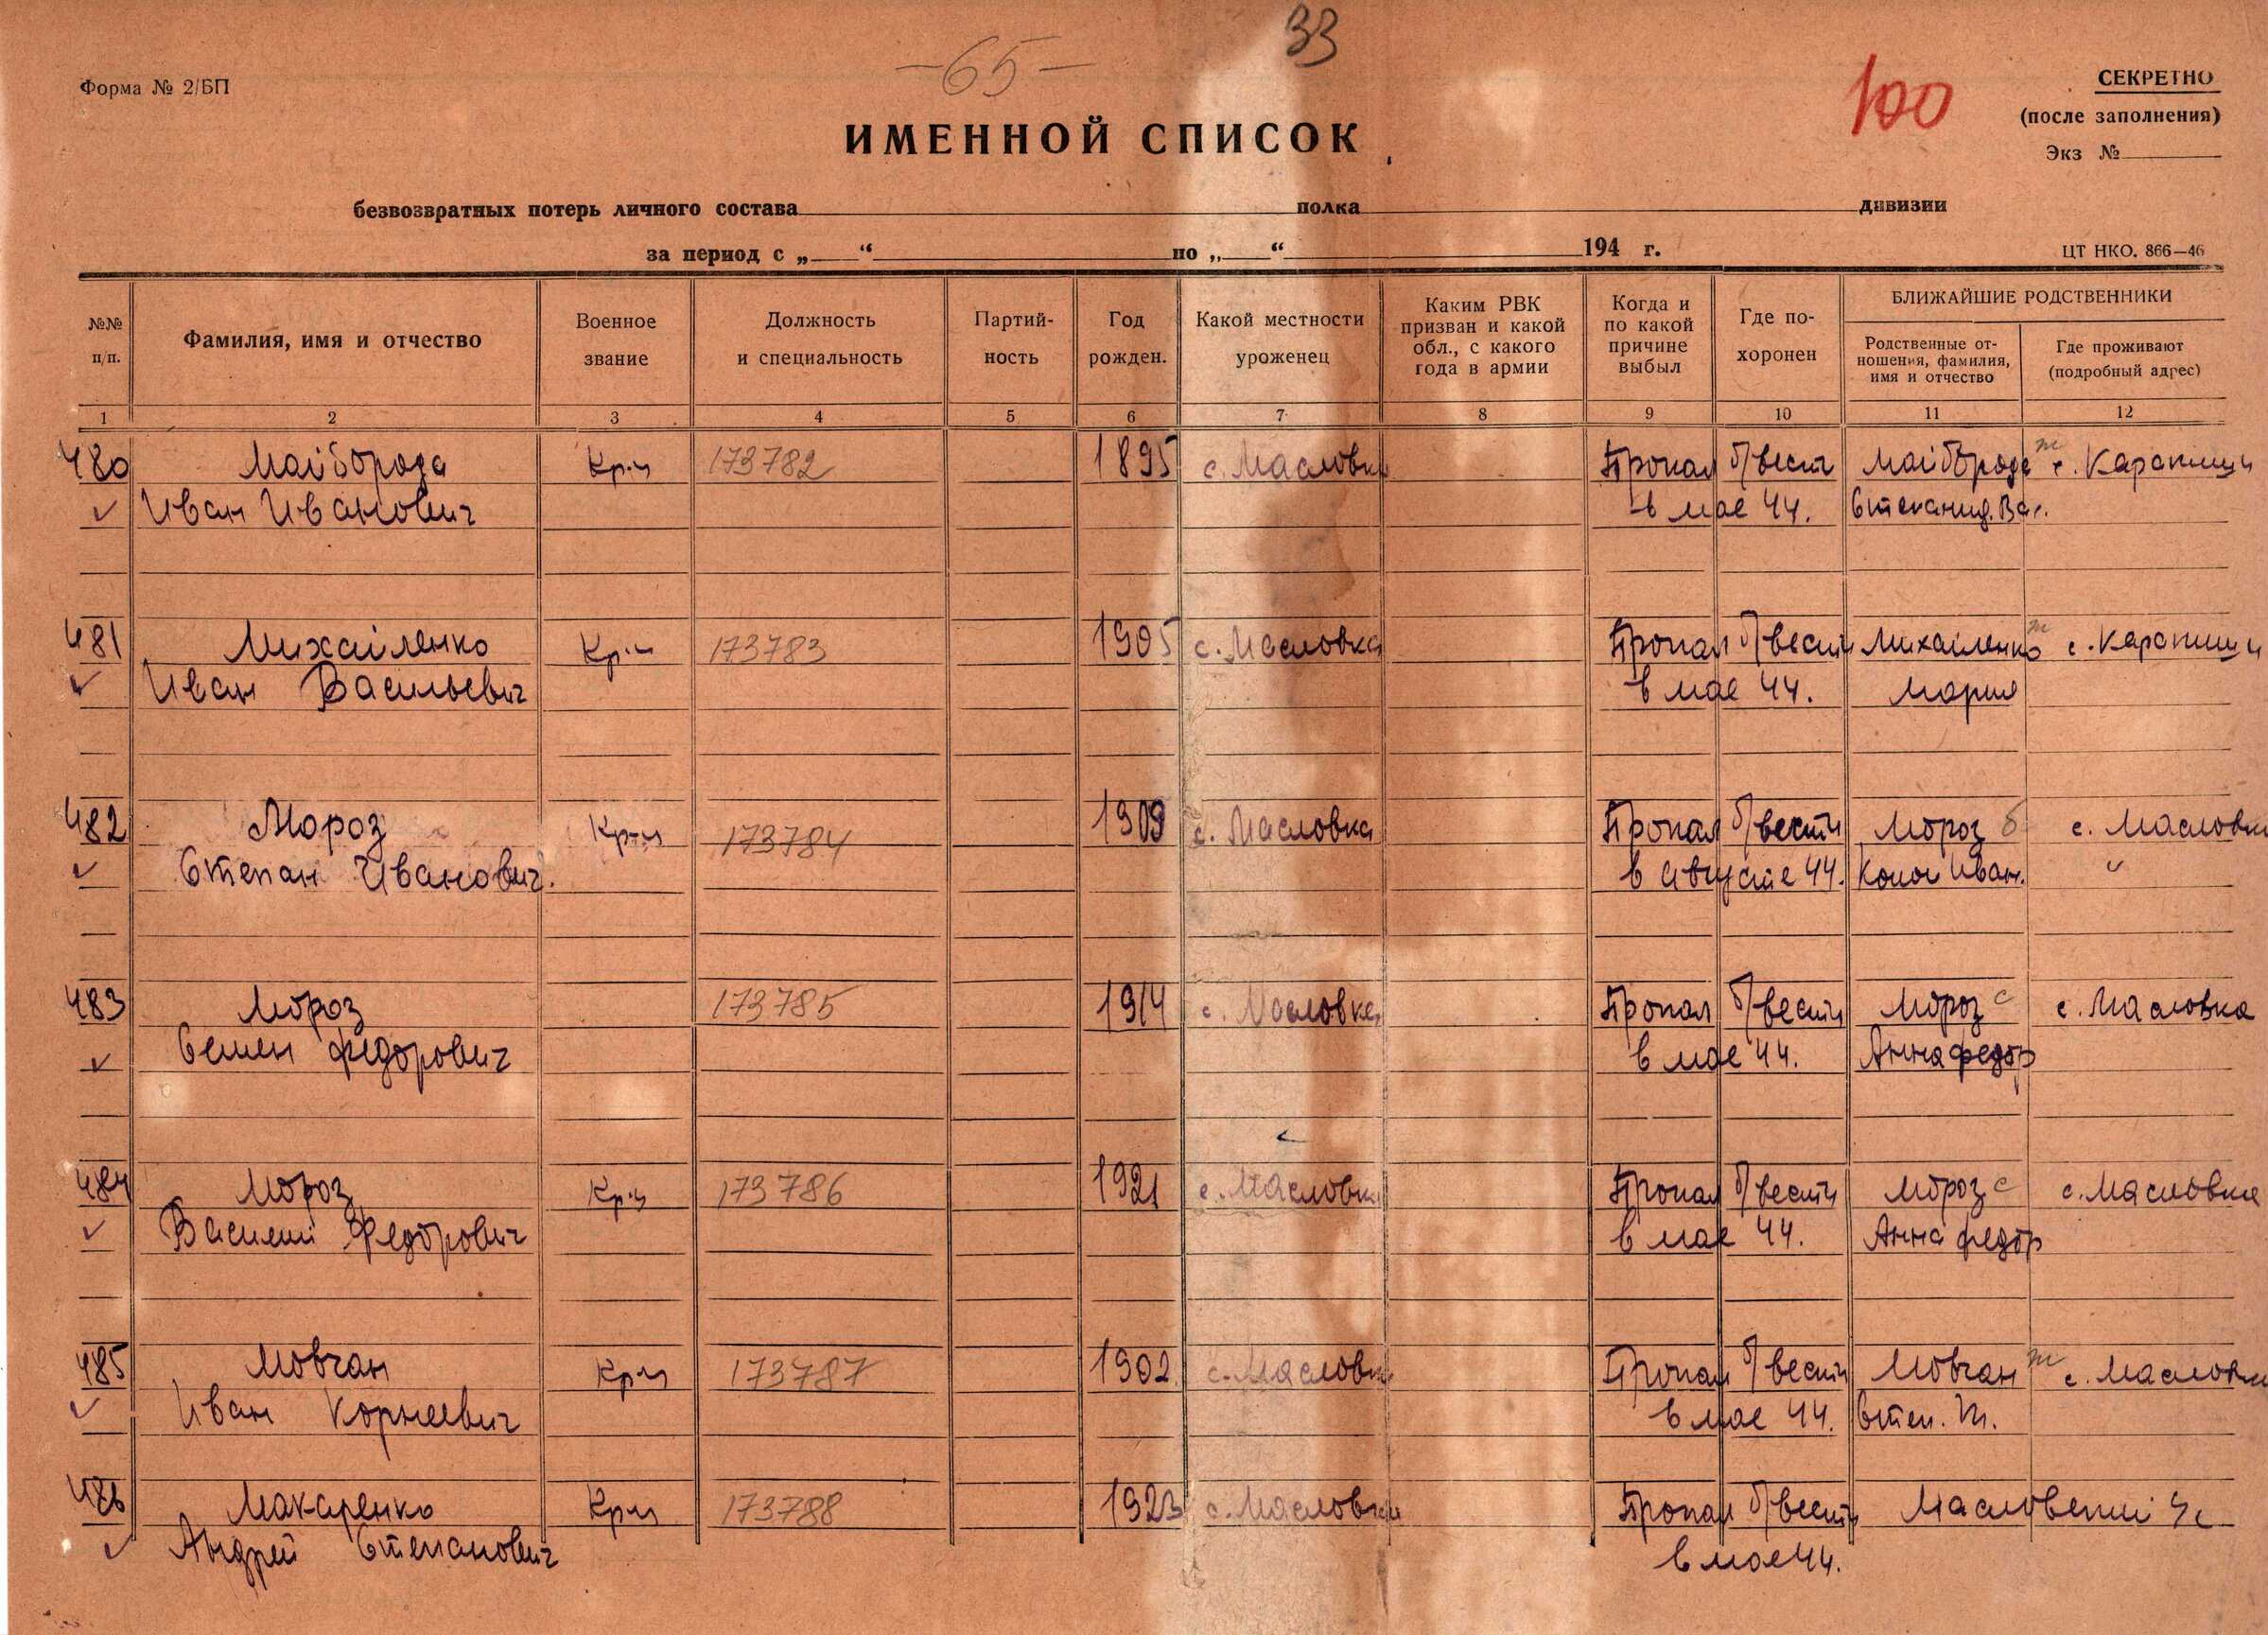 33
-65-
Форма № 2/БП
100
СЕКРЕТНО
(после заполнения)
Экз №
ИМЕННОЙ СПИСОК
безвозвратных потерь личного состава полка дивизии
за период с „ “ по „ “ 194 г.
ЦТ НКО. 866—46
№№ п/п.
Фамилия, имя и отчество
Военное звание
Должность и специальность
Партий- ность
Год рожден.
Какой местности уроженец
Каким РВК призван и какой обл., с какого года в армии
Когда и по какой причине выбыл
Где по- хоронен
БЛИЖАЙШИЕ РОДСТВЕННИКИ
Родственные от- ношения, фамилия, имя и отчество
Где проживают (подробный адрес)
1 2 3 4 5 6 7 8 9 10 11 12
480 Майборода Кр-ц 173782 1895 с. Масловка Пропал б/вести Майборода ж с. Карапиши
Иван Иванович в мае 44. Степанид. Вас.
481 Михайленко Кр-ц 173783 1905 с. Масловка Пропал б/вести Михайленко ж с. Карапиши
Иван Васильевич в мае 44. Мария
482 Мороз Кр-ц 173784 1909 с. Масловка Пропал б/вести Мороз б с. Масловка
Степан Иванович. в августе 44. Иван.
483 Мороз 173785 1914 с. Масловка Пропал б/вести Мороз с с. Масловка
Семен Федорович в мае 44. Анна Федор
484 Мороз Кр-ц 173786 1921 с. Масловка Пропал б/вести Мороз с с. Масловка
Василий Федорович в мае 44. Анна Федор
485 Мовчан Кр-ц 173787 1902 с. Масловка Пропал б/вести Мовчан ж с. Масловка
Иван Корнеевич в мае 44. Степ.
486 Макаренко Кр-ц 173788 1923 с. Масловка Пропал б/вести
Андрей Степанович в мае 44.